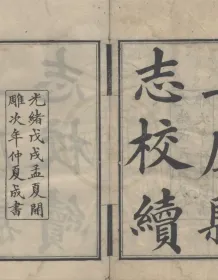 志校續
光緒戊戌孟夏開
雕次年仲夏成書